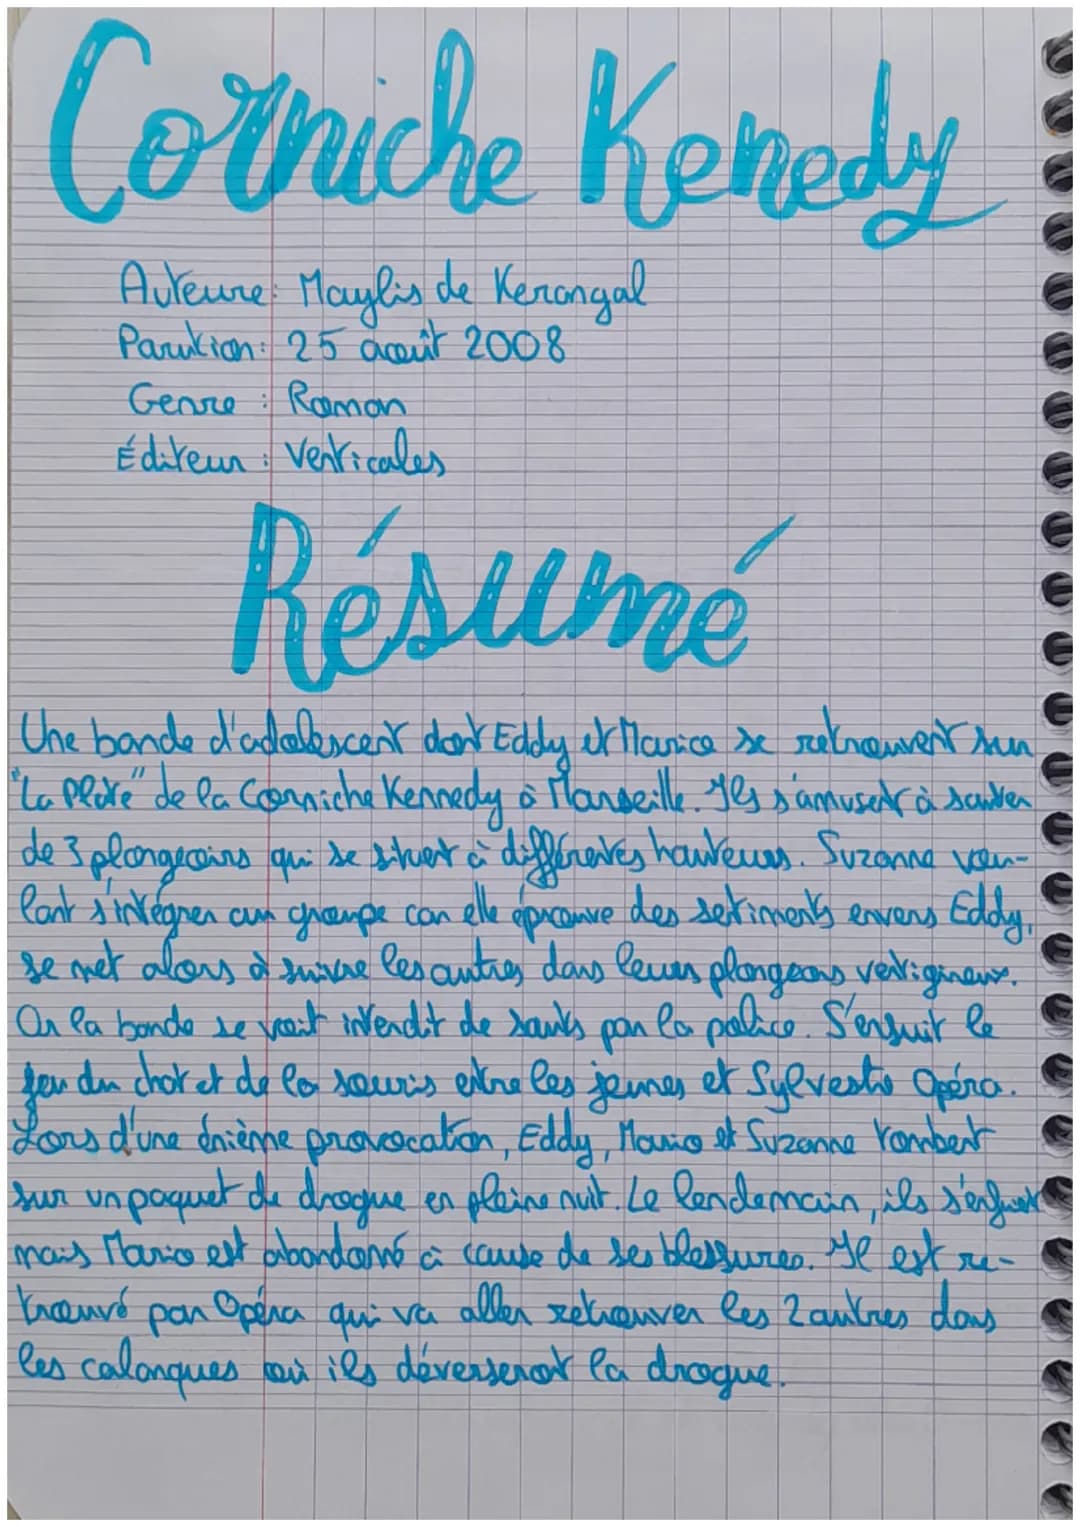 Corniche Kenedy
Auteure: Maylis de Kerangal
Parution: 25 août 2008
Genre : Roman
Éditeur : Verticales
Résumé
Une bande d'adolescent dont Eddy et Mario se retrouvent sur
"La Plate" de la Corniche Kennedy à Marseille. Ils s'amusent à sauter
de 3 plongeoirs qui se situent à différentes hauteurs. Suzanne vou-
lant s'intégrer au groupe car elle éprouve des sentiments envers Eddy,
se met alors à suivre les autres dans leurs plongeons vertigineux.
Or la bande se voit interdit de sauts par la police. S'ensuit le
jeu du chat et de la souris entre les jeunes et Sylvestre Opéra.
Lors d'une énième provocation, Eddy, Mario et Suzanne tombent
sur un paquet de drogue en pleine nuit. Le lendemain, ils s'enfuient
mais Mario est abandonné à cause de ses blessures. Il est re-
trouvé par Opéra qui va aller retrouver les 2 autres dans
les calanques où ils déverseront la drogue.